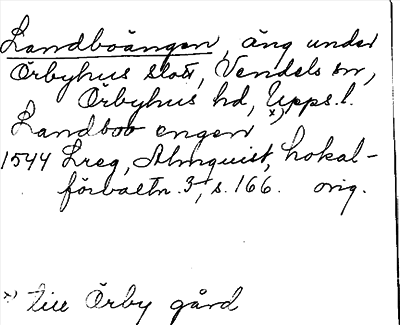 Landboängen, äng under
Örbyhus slott, Vendels sn,
Örbyhus hd, Upps. l.
Landboo engen x)
1544 Lreg, Almquist, Lokal-
förvaltn. 3, s. 166. orig.
x) till Örby gård